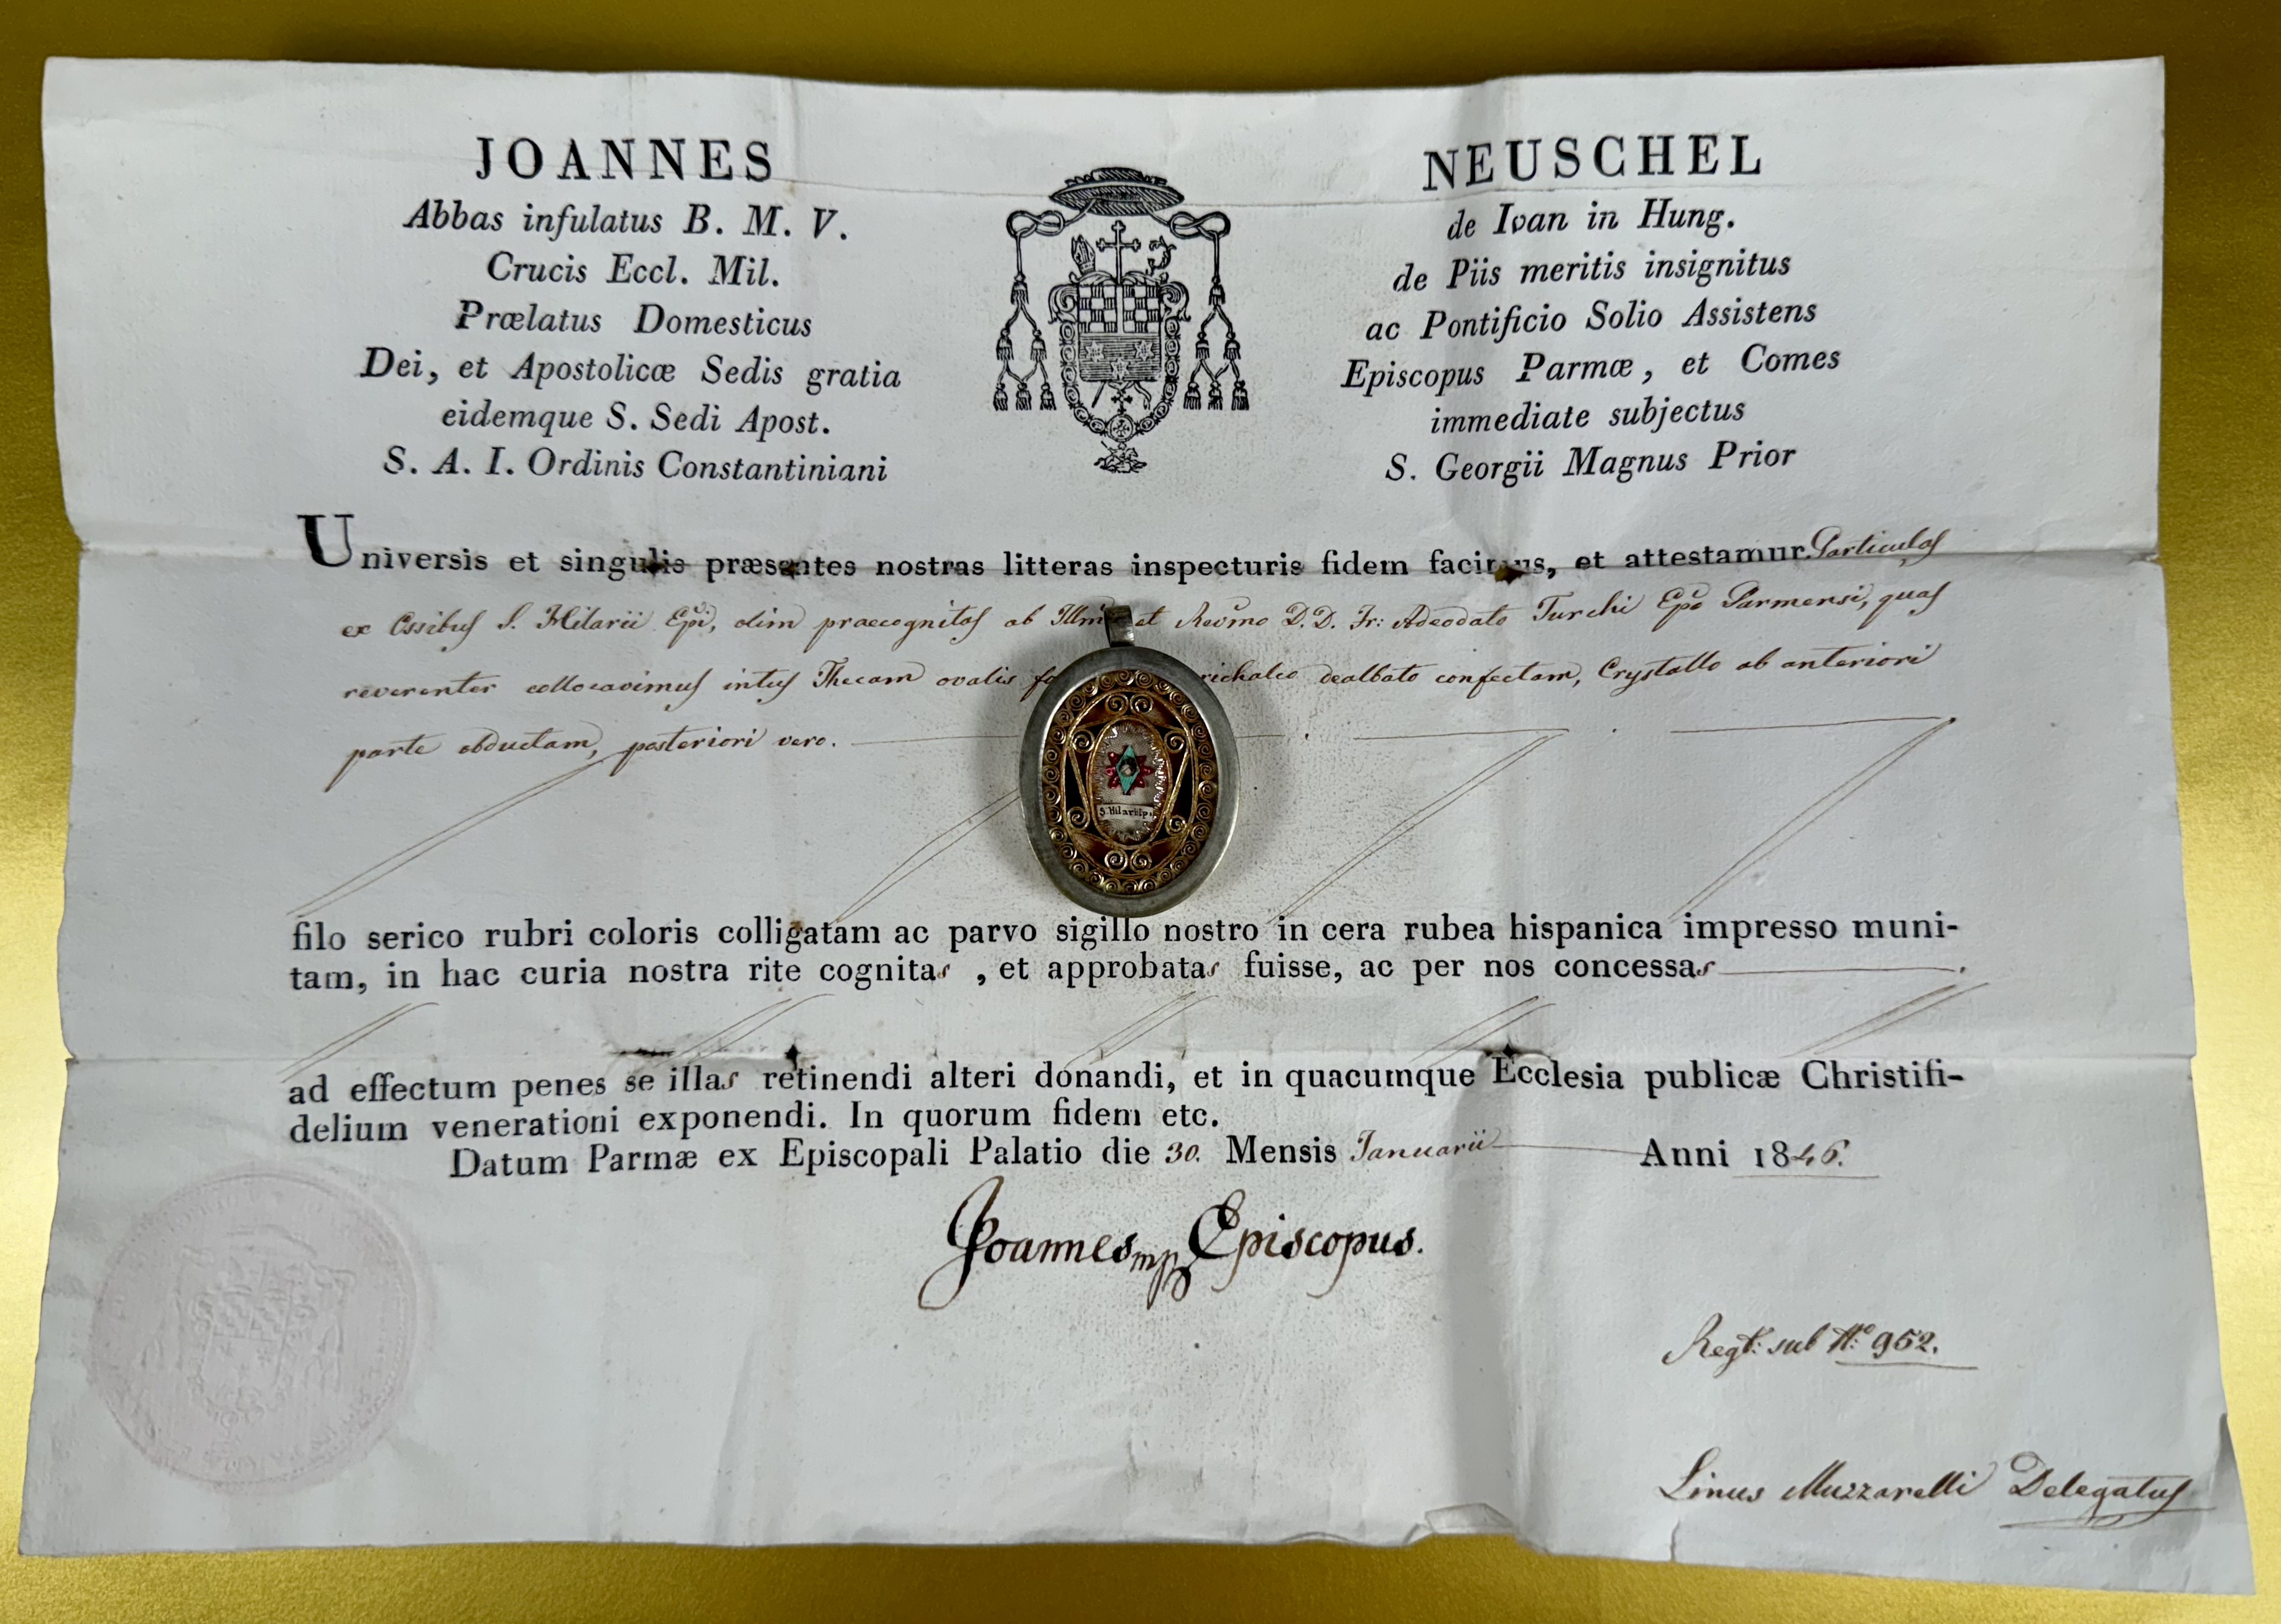 JOANNES NEUSCHEL
Abbas infulatus B. M. V. de Ivan in Hung.
Crucis Eccl. Mil. de Piis meritis insignitus
Prælatus Domesticus ac Pontificio Solio Assistens
Dei, et Apostolicæ Sedis gratia Episcopus Parmæ, et Comes
eidemque S. Sedi Apost. immediate subjectus
S. A. I. Ordinis Constantiniani S. Georgii Magnus Prior
Universis et singulis præsentes nostras litteras inspecturis fidem facimus, et attestamur Particulas
ex Ossibus S. Hilarii Epi, olim praecognitas ab Illmo et Revmo D. D. Fr: Adeodato Turchi Epo Parmensi, quas
reverenter collocavimus intus Thecam ovalis richalco dealbato confectam, Crystallo ab anteriori
parte obductam, posteriori vero.
S. Hilarii Ep.
filo serico rubri coloris colligatam ac parvo sigillo nostro in cera rubea hispanica impresso muni-
tam, in hac curia nostra rite cognitas , et approbatas fuisse, ac per nos concessas
ad effectum penes se illas retinendi alteri donandi, et in quacumque Ecclesia publicæ Christifi-
delium venerationi exponendi. In quorum fidem etc.
Datum Parmæ ex Episcopali Palatio die 30. Mensis Januarii Anni 1846.
Joannes mp Episcopus.
Regt: sub No: 952.
Linus Muzzarelli Delegatus